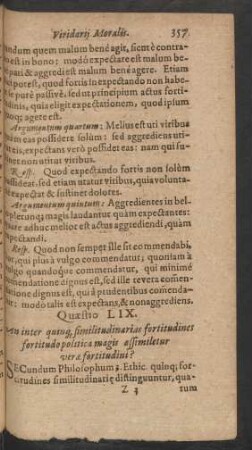 Viridarij Moralis. 357
endum quem malum benè agit, sicmè contra-
est in bono: modò expectare est malum be-
pari & aggredi est malum benè agere. Etiam
potest, quod fortis in expectando non habe-
se purè passivè. sed sit principium actus forti-
dinis, quia eligit expectationem, quod ipsum
agere est.
Argumentum quartum: Melius est uti viribus
eas possidere solùm: sed aggrediens uti-
eis, expectans verò possidet eas: nam qui su-
non utitur viribus.
Resp. Quod expectando fortis non solùm
ossideat. sed etiam utatur viribus, quia volunta-
expectat & sustinet dolores.
Argumentum quintum: Aggredientes in bel-
plerunq; magis laudantur quàm expectantes:
adhuc melior est actus aggrediendi, quàm
xpectandi.
Resp. Quod non semper ille sit commendabi-
qui plus à vulgo commendatur; quoniam à
vulgo quandoq; commendatur, qui minimè
mendatione dignus est, sed ille tevera
datione dignus est, qui à prudentibus comenda-
ur: modo talis est expectans, & non aggrediens.
Quæstio LIX.
inter quinq; similitudinarias fortitudines
fortitudo politica magis assimiletur
veræ fortitudini?
SEcundum Philosophum 3. Ethic. quinq; for-
titudines similitudinariè distinguuntur, qua-
Z 3 tum